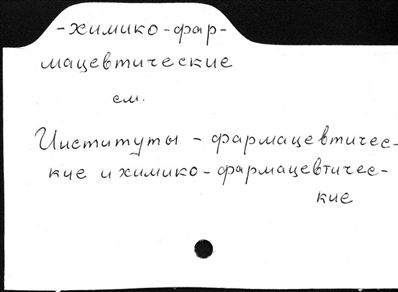 -химико-фар-
мацевтические
см.
Институты - фармацевтичес-
кие и химико-фармацевтичес-
кие